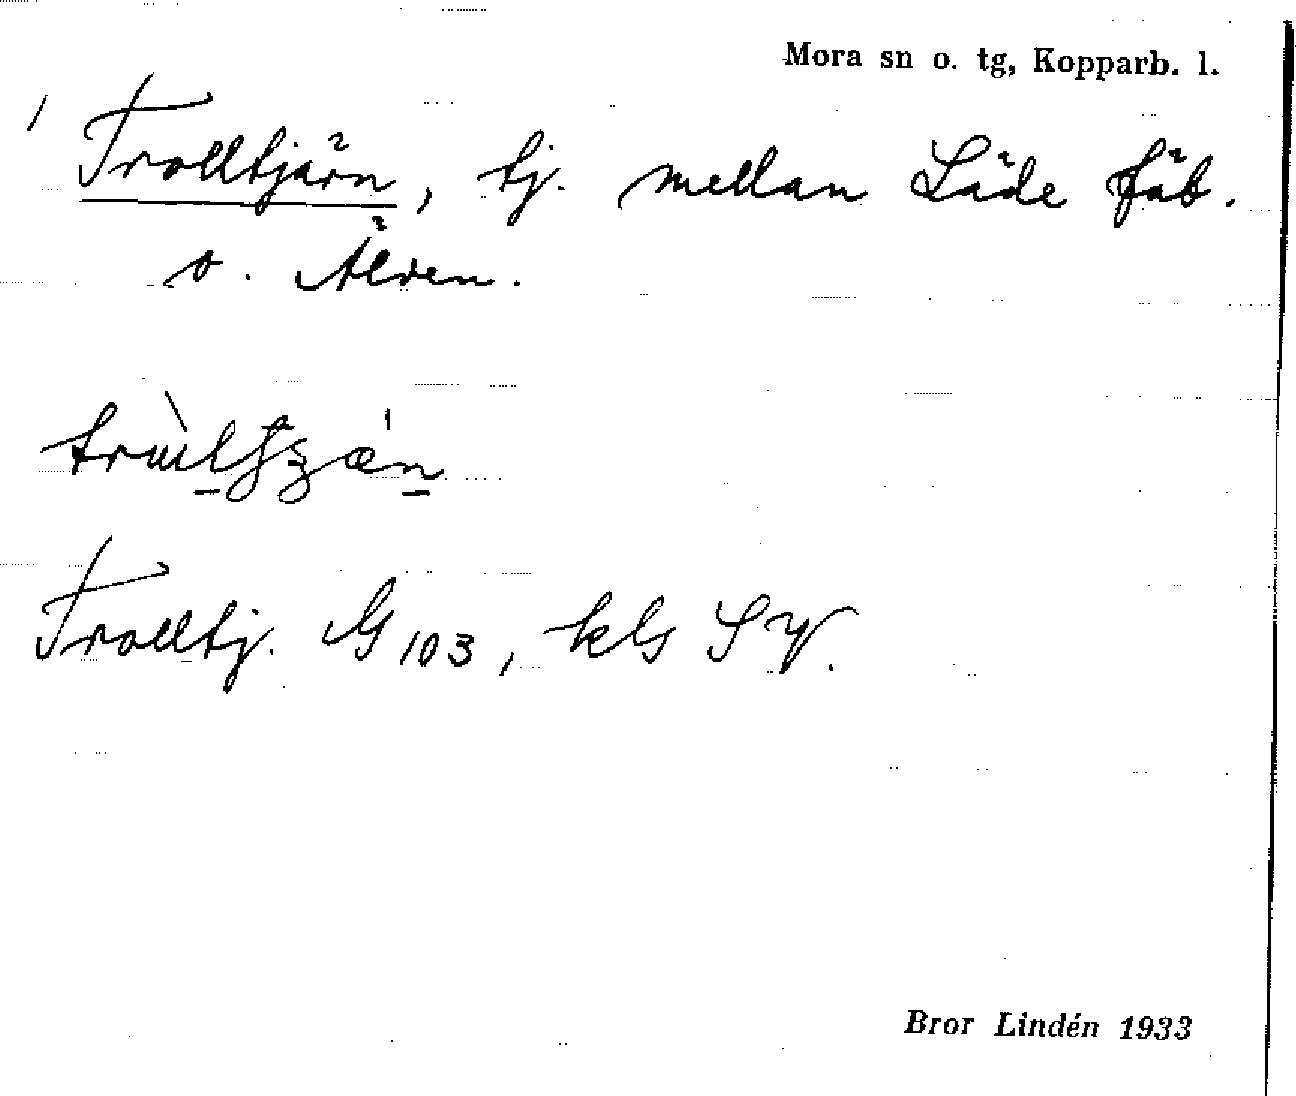 Mora sn o. tg, Kopparb. l.
/ Trolltjärn, tj. mellan Läde fäb.
o. Älven.
Trolltj. G 103, kls SV.
Bror Lindén 1933